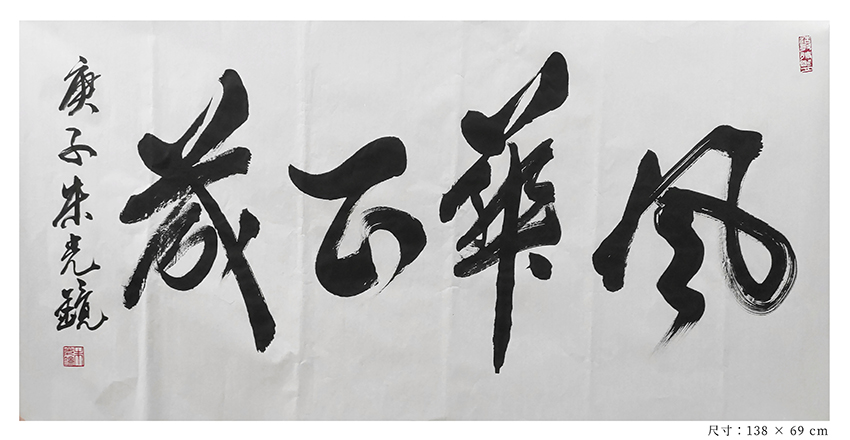 风華正茂
庚子朱光鏡
尺寸：138 × 69 cm